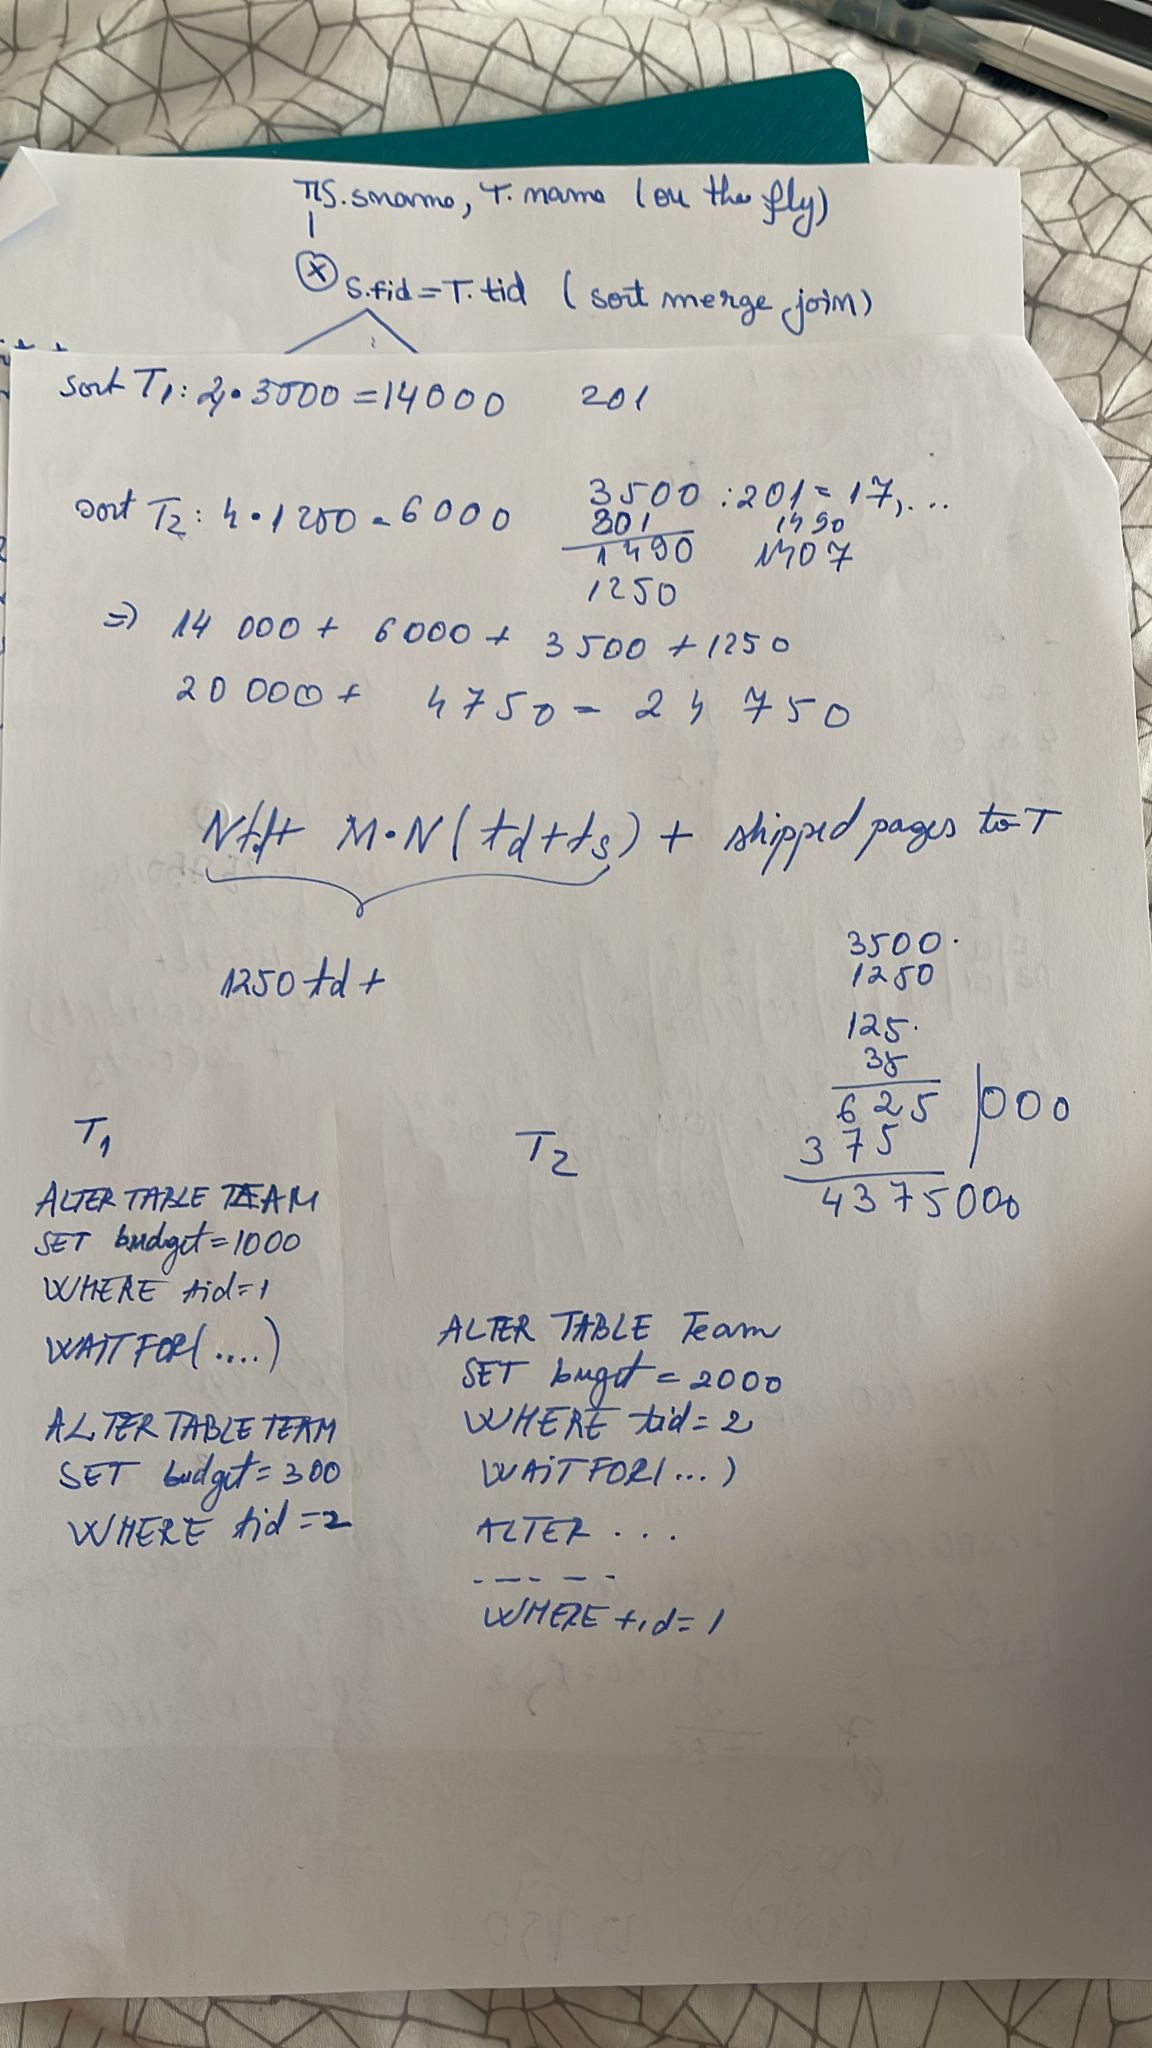 πS.sname, T.name (on the fly)
S.fid=T.tid (sort merge join)
sort T1: 4•3500=14000 201
sort T2: 4•1250=6000
3500:201=17,...
201 1490
1490 1407
1250
=> 14 000 + 6000 + 3500 +1250
20 000 + 4750 = 24 750
Ntd+ M•N(td+ts) + shipped pages to T
1250 td +
3500.
1250
125.
35
625 | 000
375
4375000
T1
ALTER TABLE TEAM
SET budget=1000
WHERE tid=1
WAITFOR(....)
ALTER TABLE TEAM
SET budget=300
WHERE tid=2
T2
ALTER TABLE Team
SET buget=2000
WHERE tid=2
WAITFOR(...)
ALTER ...
-----
WHERE tid=1